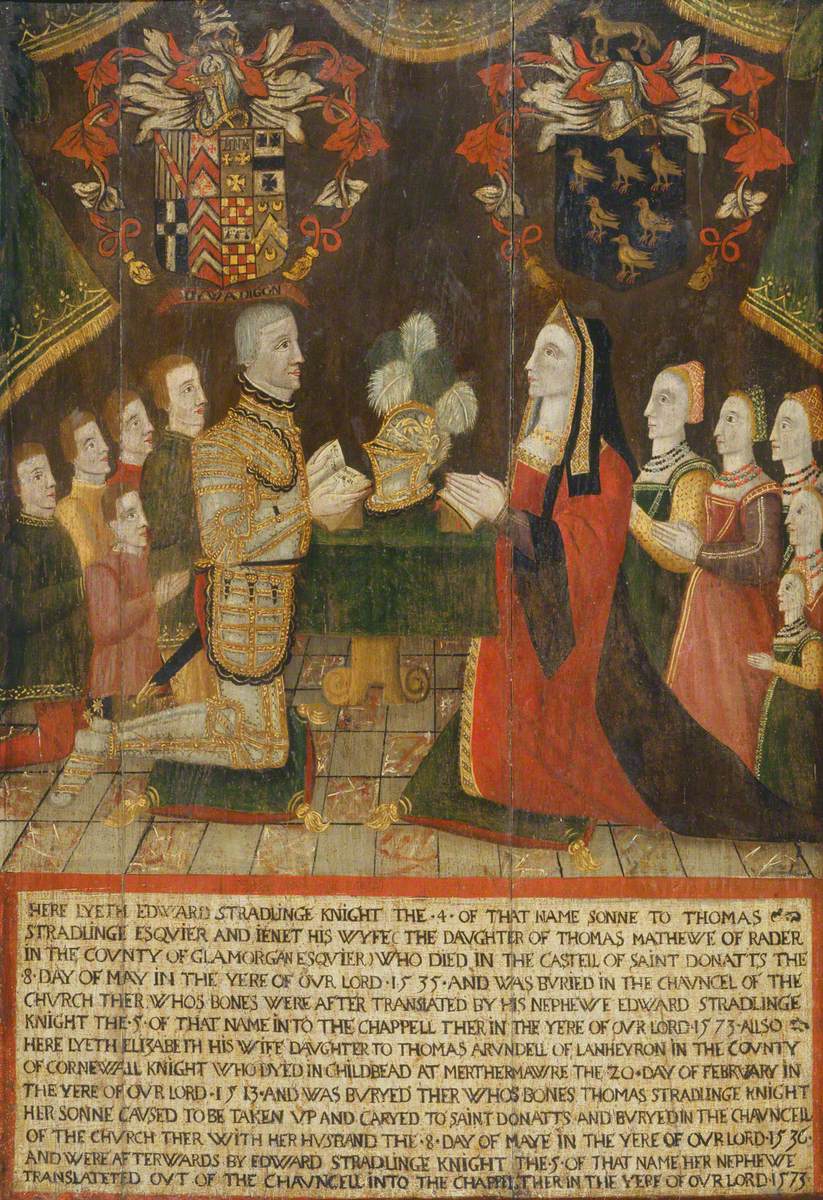 DVW A DIGON
HERE LYETH EDWARD STRADLINGE KNIGHT THE ·4· OF THAT NAME SONNE TO THOMAS
STRADLINGE ESQVIER AND IENET HIS WYFE ( THE DAVGHTER OF THOMAS MATHEWE OF RADER
IN THE COVNTY OF GLAMORGAN ESQVIER) WHO DIED IN THE CASTELL OF SAINT DONATTS THE
8· DAY OF MAY IN THE YERE OF OVR LORD ·1535· AND WAS BURIED IN THE CHAVNCEL OF THE
CHVRCH THER WHOS BONES WERE AFTER TRANSLATED BY HIS NEPHEWE EDWARD STRADLINGE
KNIGHT THE ·5· OF THAT NAME INTO THE CHAPPELL THER IN THE YERE OF OVR LORD ·1573· ALSO
HERE LYETH ELIZABETH HIS WIFE DAVGHTER TO THOMAS ARVNDELL OF LANHEYRON IN THE COVNTY
OF CORNEWALL KNIGHT WHO DYED IN CHILDBEAD AT MERTHERMAWRE THE ·20· DAY OF FEBRVARY IN
THE YERE OF OVR LORD ·1513· AND WAS BURYED THER WHOS BONES THOMAS STRADLINGE KNIGHT
HER SONNE CAVSED TO BE TAKEN VP AND CARYED TO SAINT DONATTS AND BURYED IN THE CHAVNCELL
OF THE CHVRCH THER WITH HER HUSBAND THE ·8· DAY OF MAYE IN THE YERE OF OVR LORD ·1536·
AND WERE AFTERWARDS BY EDWARD STRADLINGE KNIGHT THE ·5· OF THAT NAME HER NEPHEWE
TRANSLATETED OVT OF THE CHAVNCELL INTO THE CHAPPEL THER IN THE YERE OF OVR LORD ·1573·